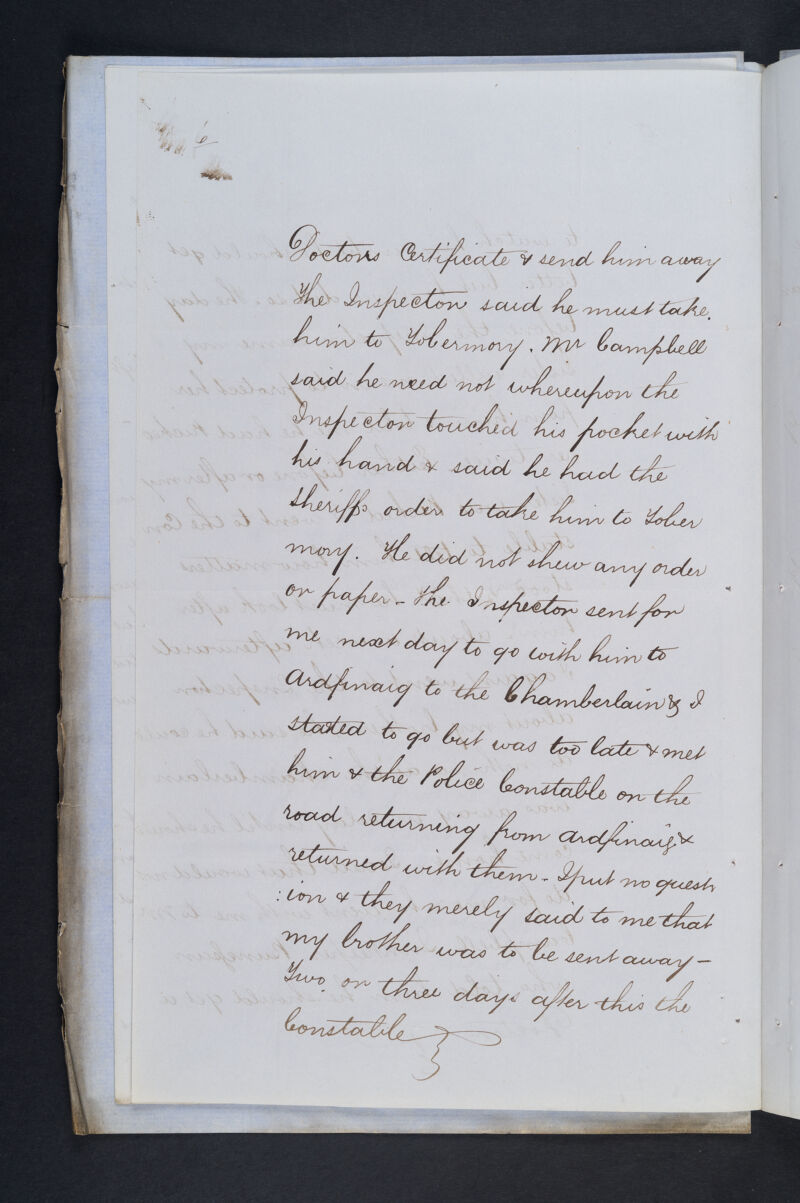 6
Doctors Certificate & send him away
The Inspector said he must take
him to Tobermory. Mr Campbell
said he need not whereupon the
Inspector touched his pocket with
his hand & said he had the
Sheriffs order to take him to Tober
mory. He did not shew any order
or paper - The Inspector sent for
me next day to go with him to
Ardfinaig to the Chamberlain & I
stated to go but was too late & met
him & the Police Constable on the
road returning from Ardfinaig &
returned with them - I put no quest
:ion & they merely said to me that
my brother was to be sent away -
Two or three days after this the
Constable